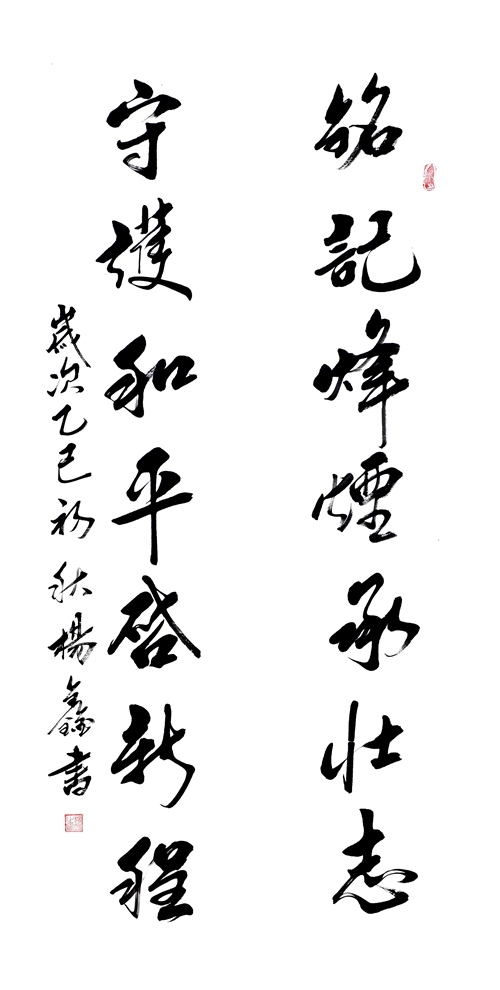 銘記烽煙承壯志
守護和平啓新程
歲次乙巳初秋楊鑫書